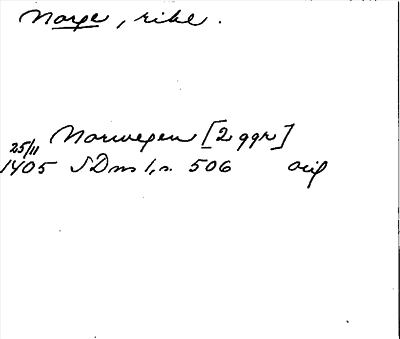 Norge, rike.
Norwegen [2 ggr]
25/11
1405 SDns 1, n. 506 orig